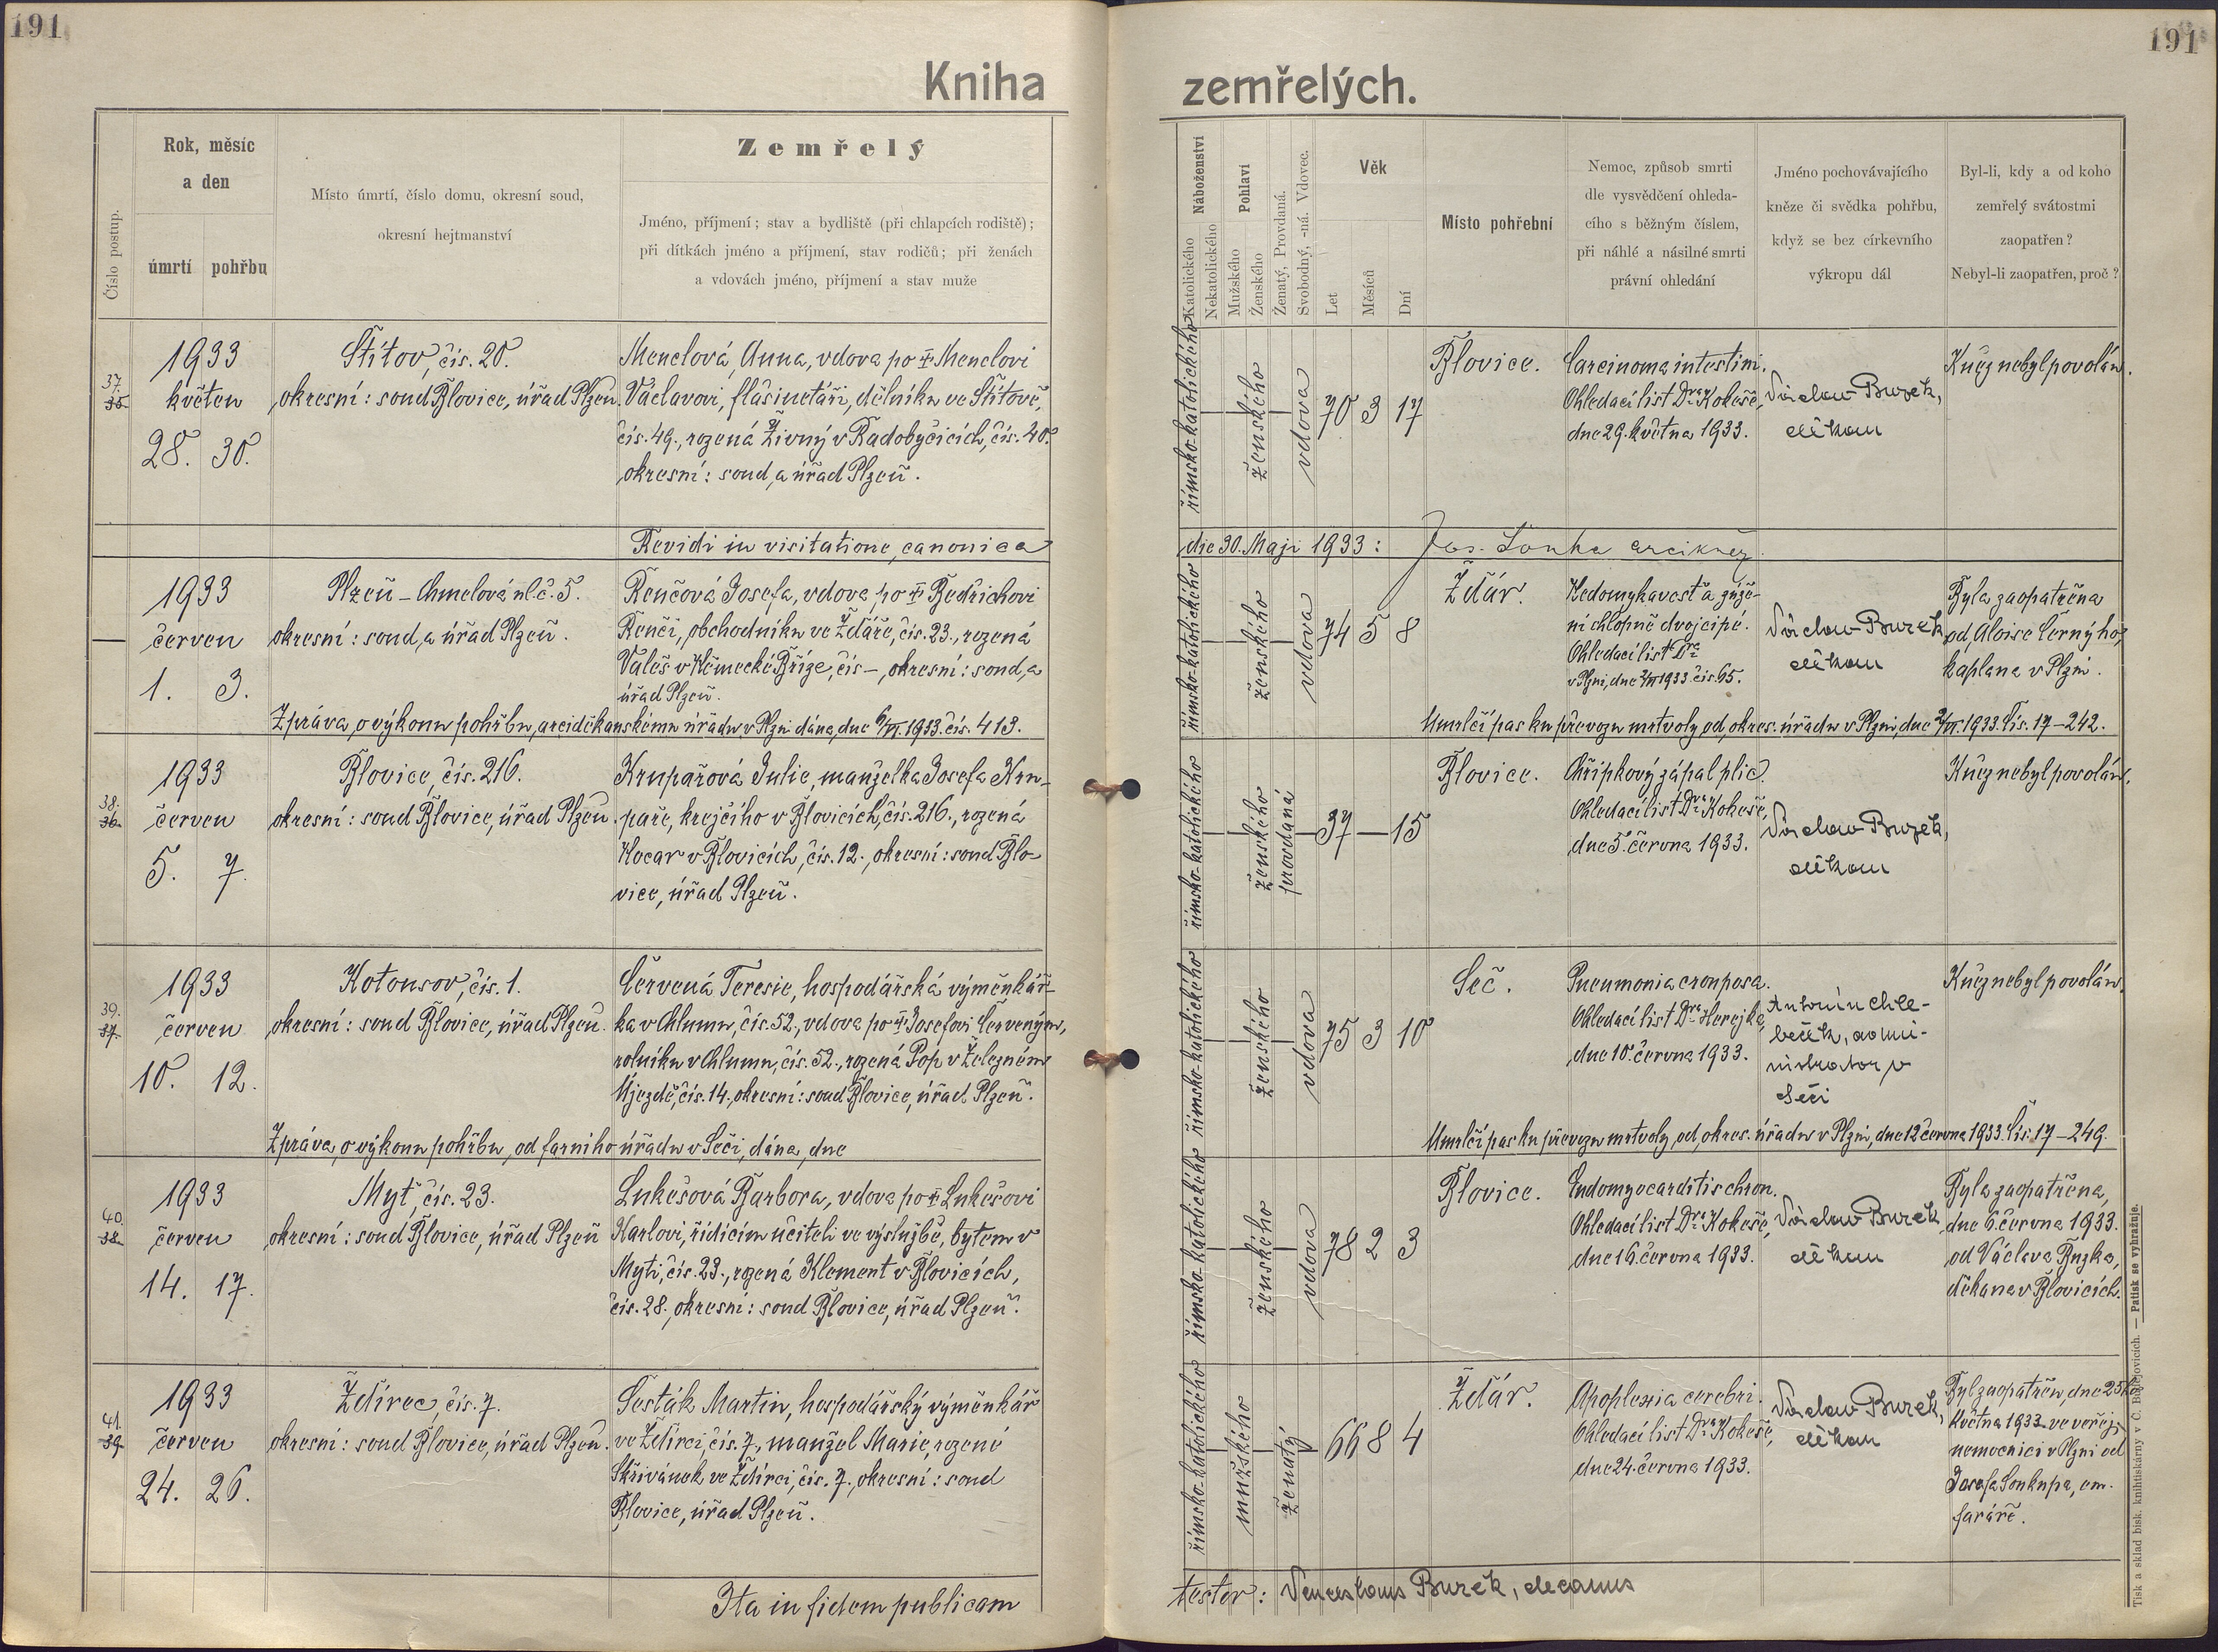 191
191
Kniha
zemřelých.
Číslo postup.
Rok, měsíc
a den
úmrtí pohřbu
Místo úmrtí, číslo domu, okresní soud,
okresní hejtmanství
Zemřelý
Jméno, příjmení; stav a bydliště (při chlapcích rodiště);
při dítkách jméno a příjmení, stav rodičů; při ženách
a vdovách jméno, příjmení a stav muže
Náboženství
Katolického
Nekatolického
Pohlaví
Mužského
Ženského
Ženatý, Provdaná.
Svobodný, -ná. Vdovec.
Věk
Let
Měsíců
Dní
Místo pohřební
Nemoc, způsob smrti
dle vysvědčení ohleda-
cího s běžným číslem,
při náhlé a násilné smrti
právní ohledání
Jméno pochovávajícího
kněze či svědka pohřbu,
když se bez církevního
výkropu dál
Byl-li, kdy a od koho
zemřelý svátostmi
zaopatřen?
Nebyl-li zaopatřen, proč?
37.
35.
1933
květen
28. 30.
Štítov, čís. 20.
okresní: soud Blovice, úřad Plzeň.
Menclová Anna, vdova po † Menclovi
Václavovi, flašinetáři, dělníku ve Štítově,
čís. 49., rozená Živný v Radobyčicích, čís. 40.
okresní: soud, a úřad Plzeň.
římsko-katolického
ženského
vdova
70 3 17
Blovice.
Carcinoma intestini.
Ohledací list Dra Kokeše,
dne 29. května 1933.
Václav Buzek,
děkan
Kněz nebyl povolán.
Revidi in visitatione canonica
die 30. Maji 1933: Jos. Louha arcikněz.
1933
červen
1. 3.
Plzeň – Chmelová ul. č. 5.
okresní: soud, a úřad Plzeň.
Renčová Josefa, vdova po † Bedřichovi
Renči, obchodníku ve Žďáře, čís. 23., rozená
Valeš v Německé Bříze, čís –, okresní: soud, a
úřad Plzeň.
Zpráva, o výkonu pohřbu, arciděkanskému úřadu v Plzni dána, dne 6/VI. 1933. čís. 413.
římsko-katolického
ženského
vdova
74 5 8
Žďár.
Nedomykavosť a zúže-
ní chlopně dvojcípé.
Ohledací list Dra
v Plzni, dne 2/VI 1933. čís. 65.
Václav Buzek
děkan
Byla zaopatřena
od Aloise Černýho,
kaplana v Plzni.
Umrlčí pas ku převozu mrtvoly od, okres. úřadu v Plzni, dne 2/VI. 1933. Čís. 17–242.
38.
36.
1933
červen
5. 7.
Blovice, čís. 216.
okresní: soud Blovice, úřad Plzeň.
Krupařová Julie, manželka Josefa Kru-
paře, krejčího v Blovicích, čís. 216., rozená
Kocar v Blovicích, čís. 12., okresní: soud Blo-
vice, úřad Plzeň.
římsko-katolického
ženského
provdaná
37 – 15
Blovice.
Chřipkový zápal plic.
Ohledací list Dra Kokeše,
dne 5. června 1933.
Václav Buzek,
děkan
Kněz nebyl povolán.
39.
37.
1933
červen
10. 12.
Kotousov, čís. 1.
okresní: soud Blovice, úřad Plzeň.
Červená Teresie, hospodářská výměnkář-
ka v Chlumu, čís. 52., vdova po † Josefovi Červeným,
rolníku v Chlumu, čís. 52., rozená Pop v Železném
Újezdě, čís. 14., okresní: soud Blovice, úřad Plzeň.
Zpráva, o výkonu pohřbu, od farního úřadu v Seči, dána, dne
římsko-katolického
ženského
vdova
75 3 10
Seč.
Pneumonia crouposa.
Ohledací list Dra Herejka,
dne 10. června 1933.
Antonín Chle-
beček, admi-
nistrator v
Seči
Kněz nebyl povolán.
Umrlčí pas ku převozu mrtvoly, od, okres. úřadu v Plzni, dne 12 června 1933. Čís. 17–249.
40.
38.
1933
červen
14. 17.
Myť, čís. 23.
okresní: soud Blovice, úřad Plzeň
Lukešová Barbora, vdova po † Lukešovi
Karlovi, řídícím učiteli ve výslužbě, bytem v
Myti, čís. 23., rozená Klement v Blovicích,
čís. 28., okresní: soud Blovice, úřad Plzeň.
římsko-katolického
ženského
vdova
78 2 3
Blovice.
Endomyocarditis chron.
Ohledací list Dra Kokeše,
dne 16. června 1933.
Václav Buzek
děkan
Byla zaopatřena,
dne 6. června 1933.
od Václava Buzka,
děkana v Blovicích.
41.
39.
1933
červen
24. 26.
Ždírec, čís. 7.
okresní: soud Blovice, úřad Plzeň.
Šesták Martin, hospodářský výměnkář
ve Ždírci, čís. 7., manžel Marie, rozené
Skřivánek ve Ždírci, čís. 7., okresní: soud
Blovice, úřad Plzeň.
římsko-katolického
mužského
ženatý
66 8 4
Žďár.
Apoplexia cerebri.
Ohledací list Dra Kokeše,
dne 24. června 1933.
Václav Buzek,
děkan
Byl zaopatřen, dne 25ho
května 1933 ve veřej.
nemocnici v Plzni od
Josefa Soukupa, em.
faráře.
Ita in fidem publicam
testor: Venceslaus Buzek, decanus
Tisk a sklad bisk. knihtiskárny v Č. Budějovicích. — Patisk se vyhražuje.